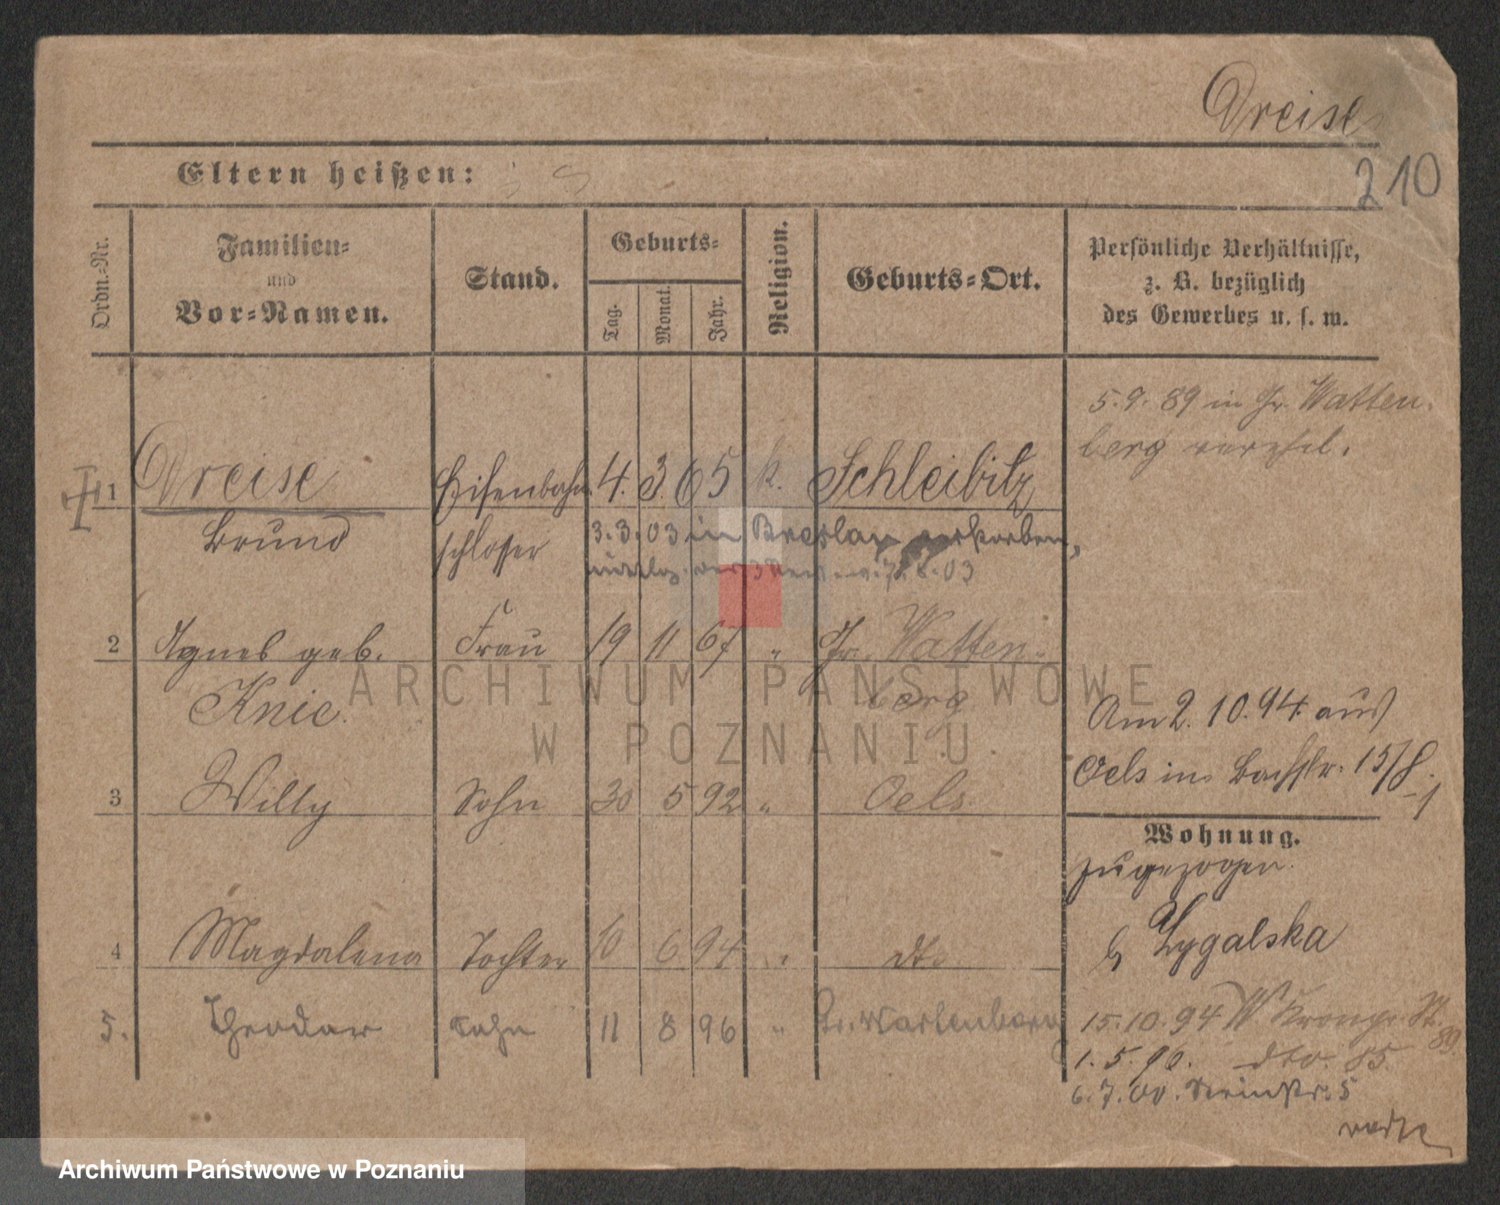 Dreise
210
Eltern heißen:
Ordn.-Nr.
Familien-
und
Vor-Namen.
Stand.
Geburts-
Tag.
Monat.
Jahr.
Religion.
Geburts-Ort.
Persönliche Verhältnisse,
z. B. bezüglich
des Gewerbes u. s. w.
5.9.89 in Gr. Watten-
berg verehel.
1 Dreise Eisenbahn 4. 3. 65 k. Schleibitz
Bruno schlosser 3.3.03 in Breslau verstorben,
7.8.03
2 Agnes geb. Frau 19 11 67 " Gr. Watten-
Knie berg
Am 2.10.94 aus
Oels in Bachstr. 15/8.
3 Willy Sohn 30 5 92 " Oels
Wohnung.
zugezogen
4 Magdalena Tochter 10 6 94 " dto
b Zygalska
5. Theodor Sohn 11 8 96 " Gr. Wartenberg
15.10.94 W Kronpr. St. 89
1.5.96. dto. 85.
6.7.00. Steinstr. 5
ARCHIWUM PAŃSTWOWE
W POZNANIU
Archiwum Państwowe w Poznaniu